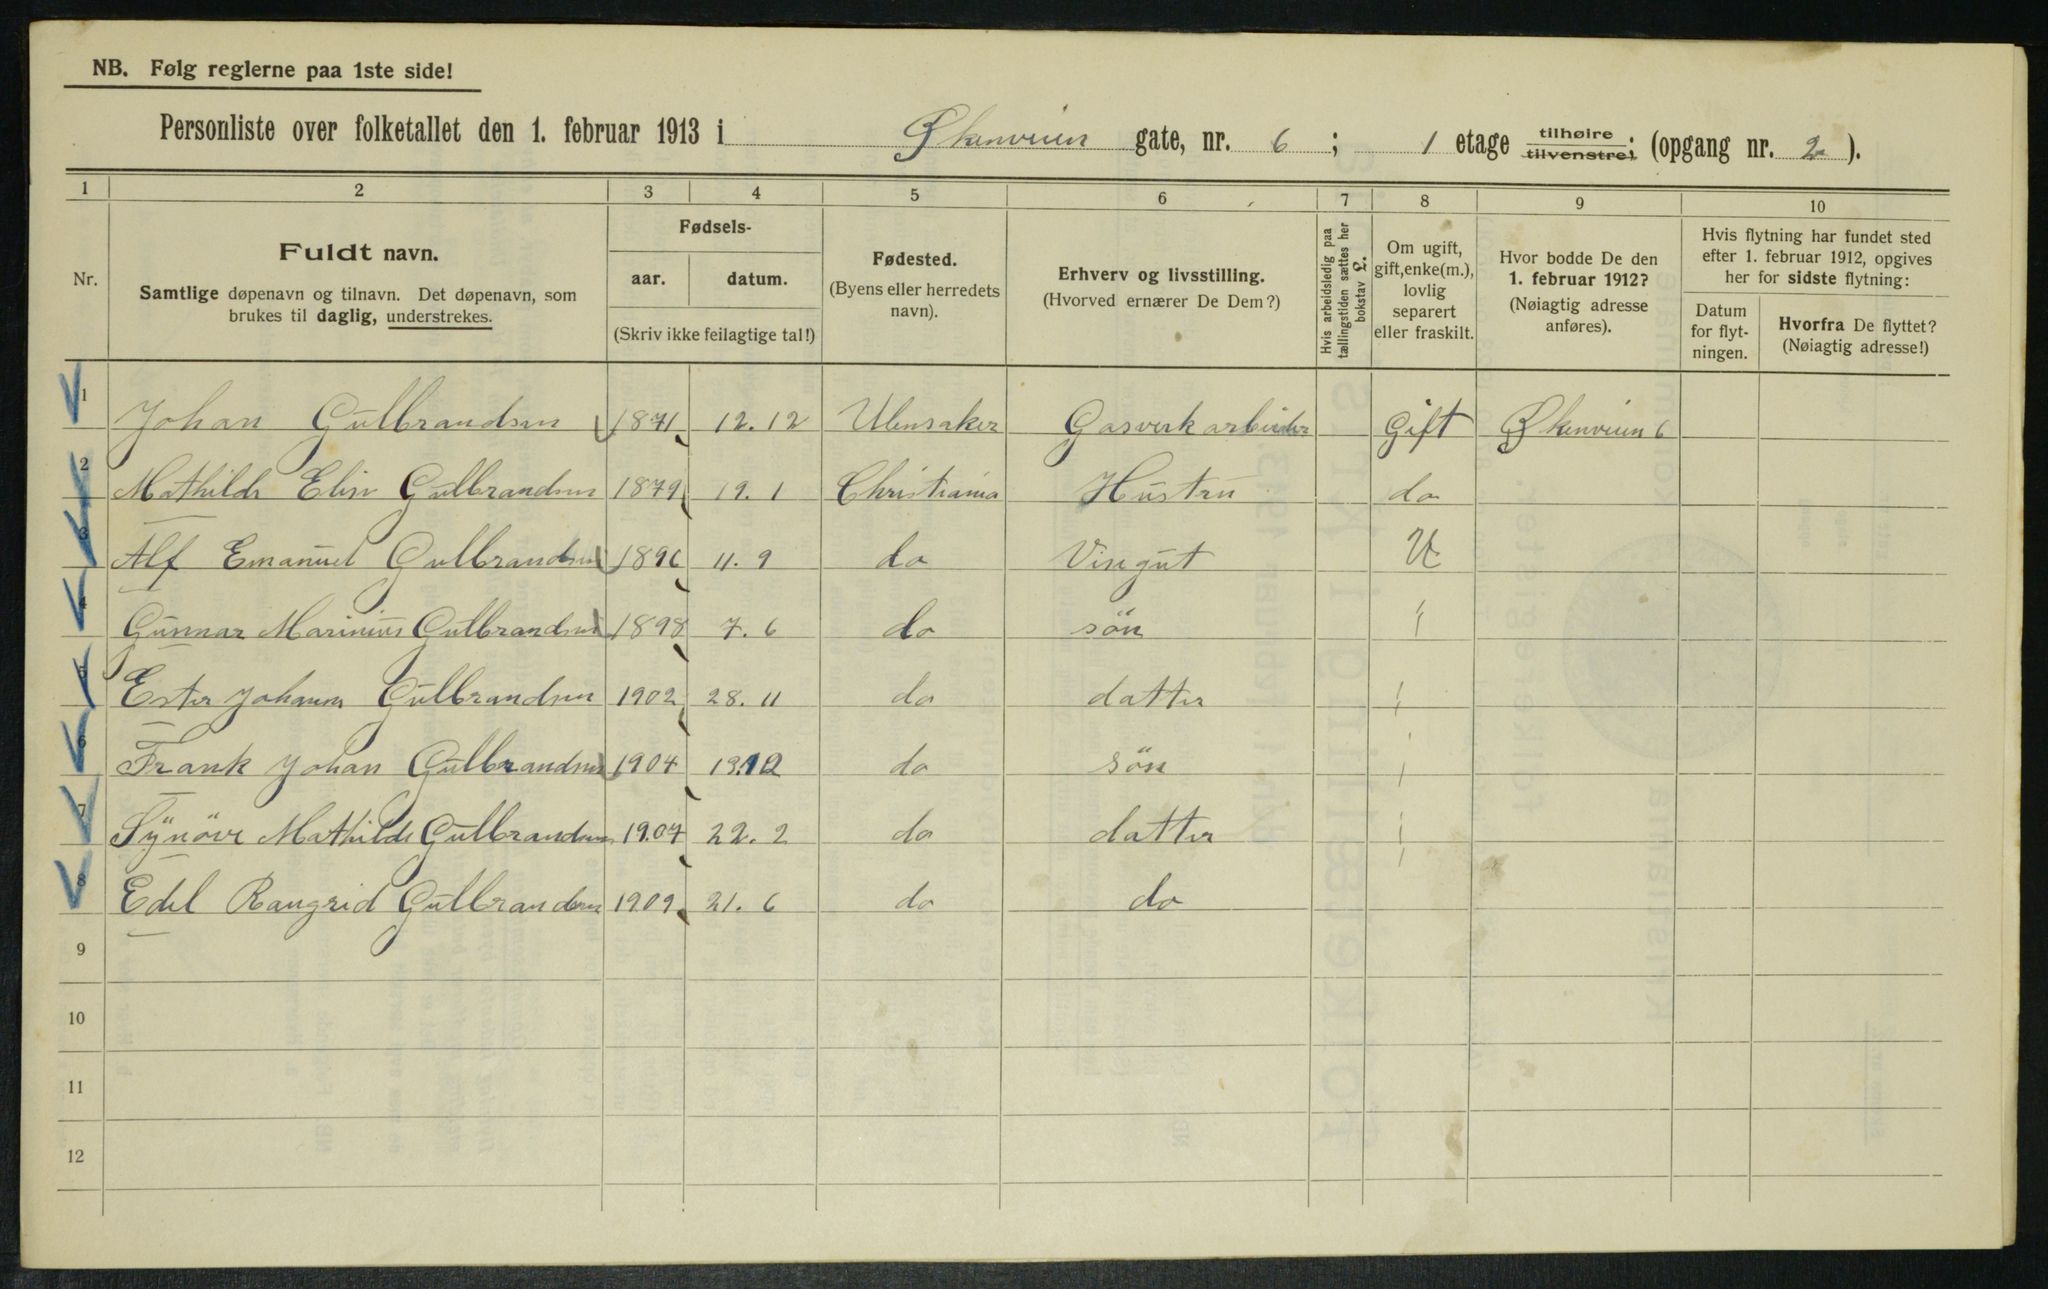 NB. Følg reglerne paa 1ste side!
Personliste over folketallet den 1. februar 1913 i Økenveien gate, nr. 6; 1 etage tilhøire tilvenstre; (opgang nr. 2).
1 2 3 4 5 6 7 8 9 10
Nr.
Fuldt navn.
Samtlige døpenavn og tilnavn. Det døpenavn, som
brukes til daglig, understrekes.
Fødsels-
aar. datum.
(Skriv ikke feilagtige tal!)
Fødested.
(Byens eller herredets
navn).
Erhverv og livsstilling.
(Hvorved ernærer De Dem?)
Hvis arbeidsledig paa
tællingstiden sættes her
bokstav L.
Om ugift,
gift, enke(m.),
lovlig
separert
eller fraskilt.
Hvor bodde De den
1. februar 1912?
(Nøiagtig adresse
anføres).
Hvis flytning har fundet sted
efter 1. februar 1912, opgives
her for sidste flytning:
Datum
for flyt-
ningen.
Hvorfra De flyttet?
(Nøiagtig adresse!)
1 Johan Gulbrandsen 1871 12.12 Ulensaker Gasverk arbeider Gift Økenveien 6
2 Mathilde Elise Gulbrandsen 1879 19.1 Christiania Hustru do
3 Alf Emanuel Gulbrandsen 1896 11.9 do Visegut U
4 Gunnar Marinius Gulbrandsen 1898 7.6 do sön "
5 Ester Johanna Gulbrandsen 1902 28.11 do datter "
6 Frank Johan Gulbrandsen 1904 13.12 do sön "
7 Synöve Mathilde Gulbrandsen 1907 22.2 do datter "
8 Edel Rangrid Gulbrandsen 1909 21.6 do do "
9
10
11
12